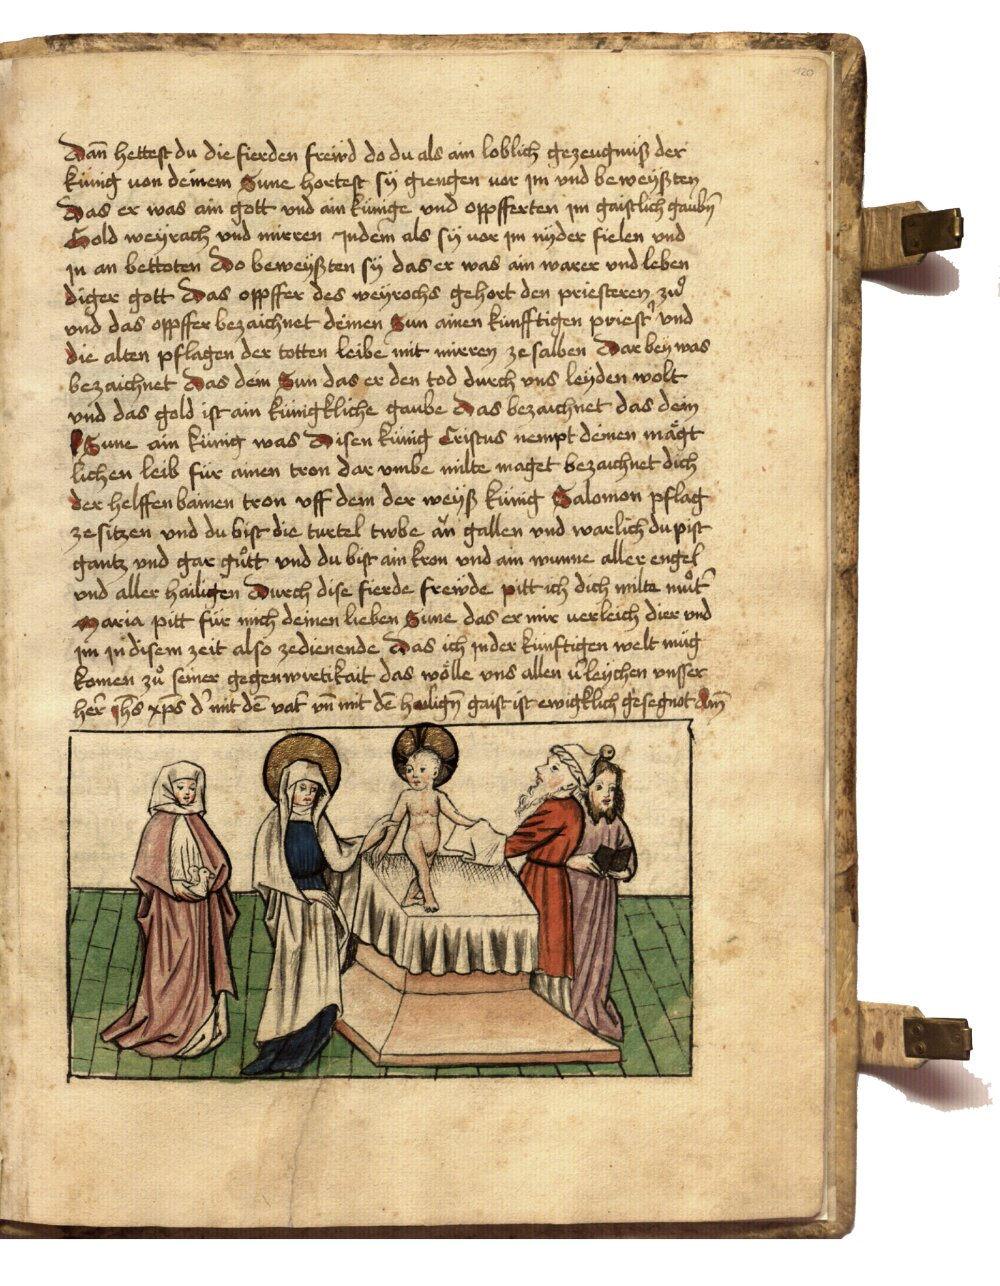 120
Dan̄ hettest du die fierden freẅd do du als ain loblich gezeugniß der
künig von deinem Sune hortest sÿ giengen vor jm vnd beweÿßten
Das er was ain gott vnd ain künige vnd oppfferten jm gaistlich
Gold weÿrach vnd mirren Jndem als sÿ vor jm nÿder fielen vnd
jn an bettoten Do beweÿßten sÿ das er was ain warer vnd leben
diger gott Das oppffer des weÿrochs gehort den priesteren zů
vnd das oppffer bezaichnet deinen Sun ainen künfftigen priest' vnd
die alten pflagen der totten leibe mit mirren ze salben Dar beÿ was
bezaichnet Das dein Sun das er den tod durch vns leÿden wolt
vnd das gold ist ain künigkliche gaube Das bezaichnet das dein
Sune ain künig was Disen künig Cristus nempt deinen mägt
lichen leib für ainen tron dar vmbe milte maget bezaichnet dich
der helffenbainen tron vff dem der weÿß künig Salomon pflag
ze sitzen vnd du bist die turtel twbe än gallen vnd warlich du pist
gantz vnd gar gůtt vnd du bist ain kron vnd ain wunne aller engel
vnd aller hailigen Durch dise fierde freẅde pitt ich dich milte můt'
Maria pitt für mich deinen lieben Sune das er mir verleich dier vnd
jm in disem zeit also zedienende Das ich jnder künftigen welt müg
komen zů seiner gegenwirtikait das wölle vns allen v'leÿchen vnsser
her' jh̄s xp̄s d' mit dē vat' vn̄ mit dē hailign̄ gaist ist ewigklich gesegnot Am̄